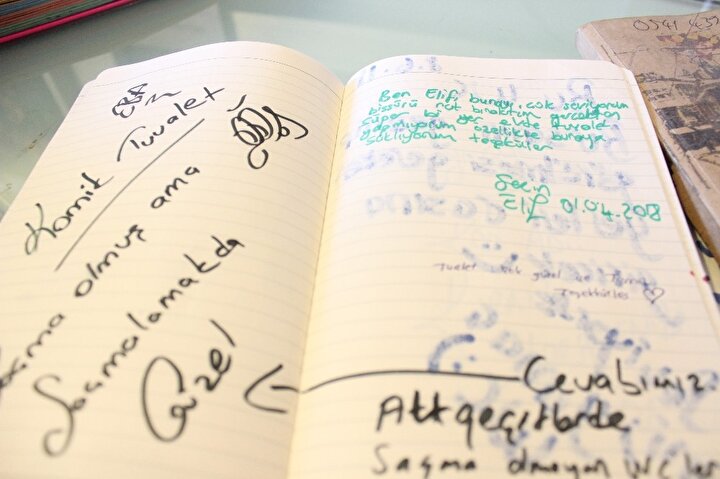 Komik Tuvalet
Saçma olmuş ama
Saçmalamakda
Güzel
Ben Elif burayı çok seviyorum
bissürü not bıraktım gerçekten
süper bi yer evde tuvalet
yapmıyorum özellikle buraya
saklıyorum teşküler
Elif 01.04.2018
Tuvalet çok güzel ve
Teşekkürler
Cevabımız
Altgeçitlerde
Saçma olmayan wc ler
0541